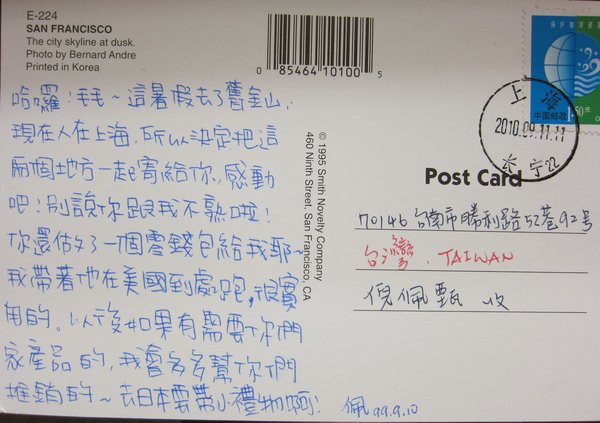 E-224
SAN FRANCISCO
The city skyline at dusk.
Photo by Bernard Andre
Printed in Korea
0 85464 10100 5
哈囉!毛毛~這暑假去了舊金山,
現在人在上海,所以決定把這
兩個地方一起寄給你,感動
吧!別說你跟我不熟啦!
你還做了一個零錢包給我耶~
我帶著他在美國到處跑,很實
用的。以後如果有需要你們
家產品的,我會多多幫你們
推銷的~去日本要帶小禮物啊!
佩 99.9.10
© 1995 Smith Novelty Company
460 Ninth Street, San Francisco, CA
中国邮政
1.50元
上海
2010.09.11.11
长宁22
Post Card
70146 台南市勝利路52巷92号
台灣, TAIWAN
倪佩甄 收